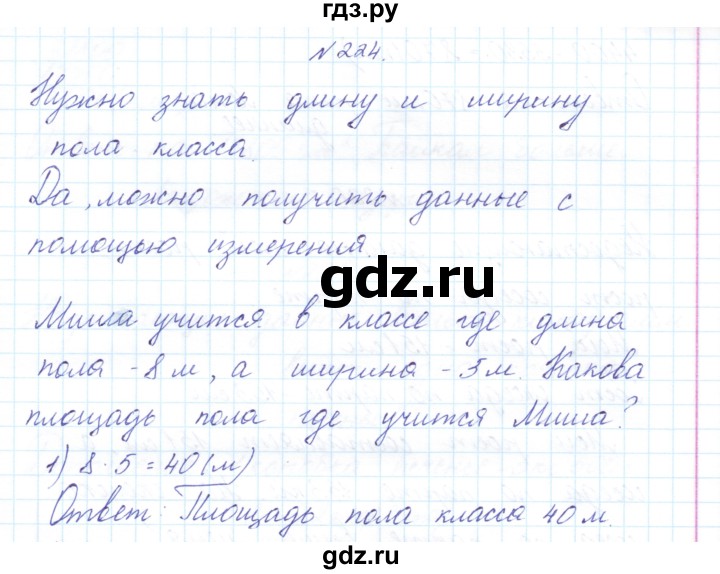 гдз.ру
№ 224.
Нужно знать длину и ширину
пола класса.
Да, можно получить данные с
помощью измерения.
gdz.ru
Миша учится в классе где длина
пола - 8 м, а ширина - 5 м. Какова
площадь пола где учится Миша?
1) 8 · 5 = 40 (м)
Ответ: Площадь пола класса 40 м.
gdz.ru